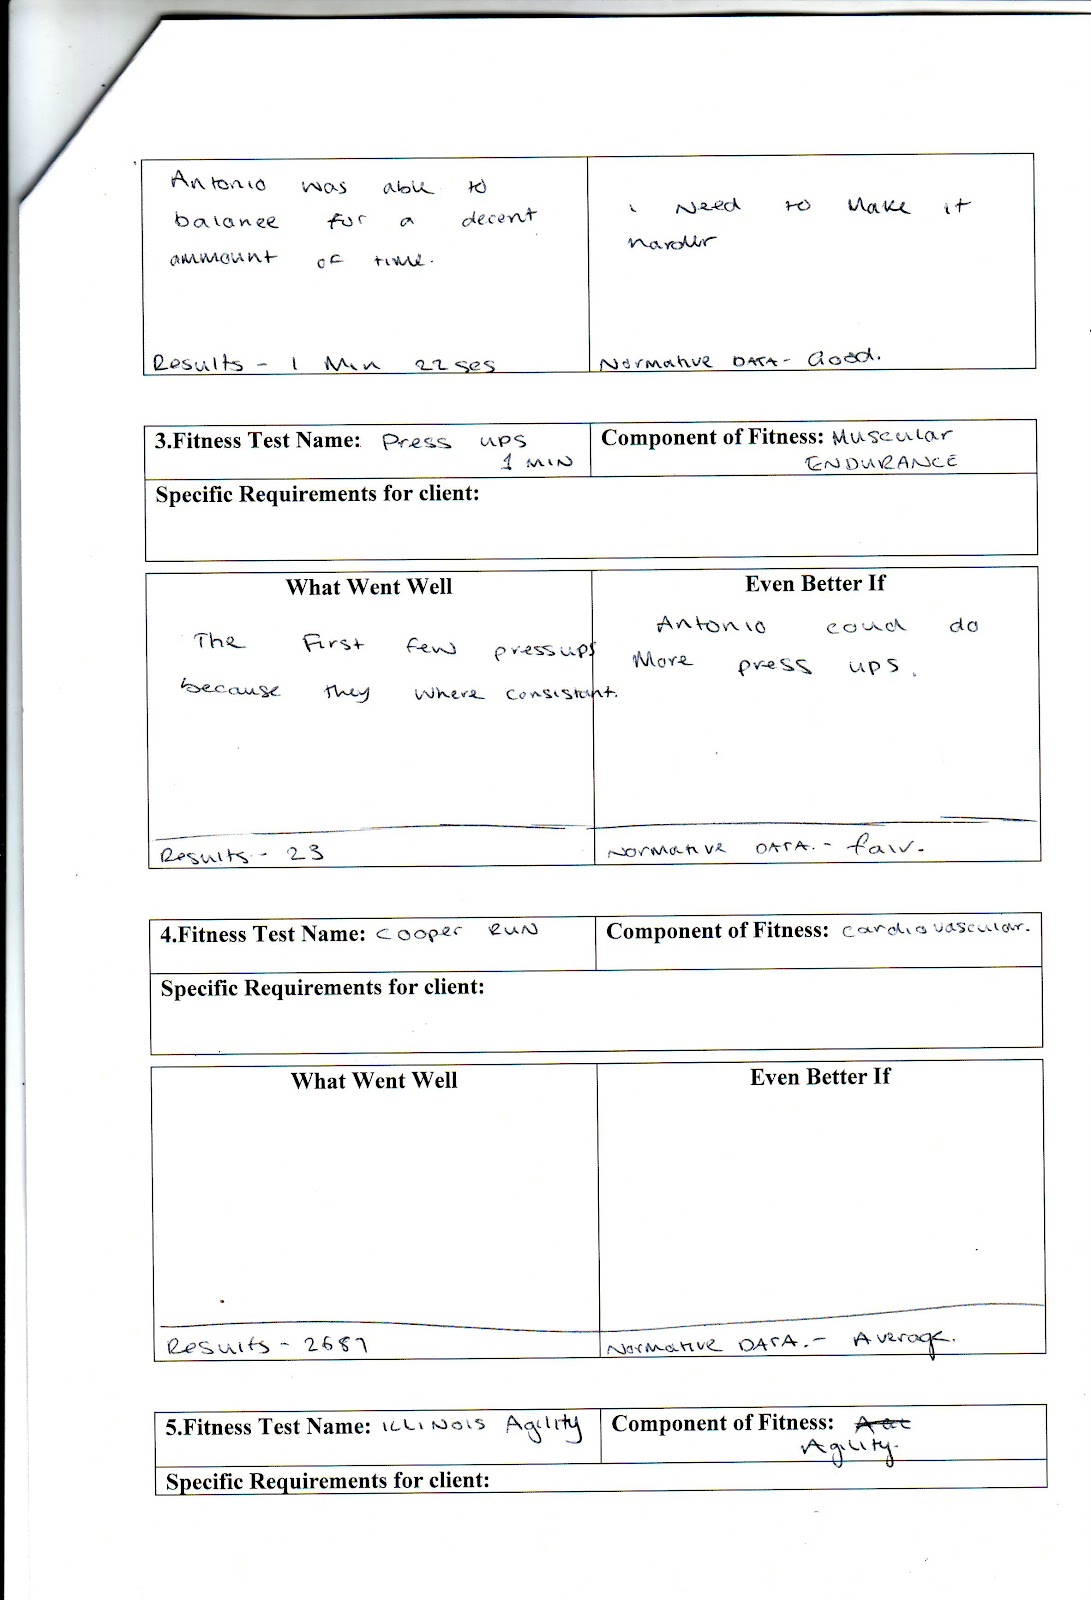 Antonio was able to
balance for a decent
ammount of time.
Results - 1 Min 22 ses
i Need to Make it
harder
Normative DATA - Good.
3.Fitness Test Name: Press ups
1 MIN
Component of Fitness: Muscular
ENDURANCE
Specific Requirements for client:
What Went Well
The First few pressups
because they where consistant.
Results - 23
Even Better If
Antonio coud do
More press ups.
Normative DATA. - fair.
4.Fitness Test Name: Cooper RUN
Component of Fitness: Cardiovascular.
Specific Requirements for client:
What Went Well
Results - 2687
Even Better If
Normative DATA. - Average.
5.Fitness Test Name: ILLINOIS Agility
Component of Fitness:
Agility.
Specific Requirements for client: